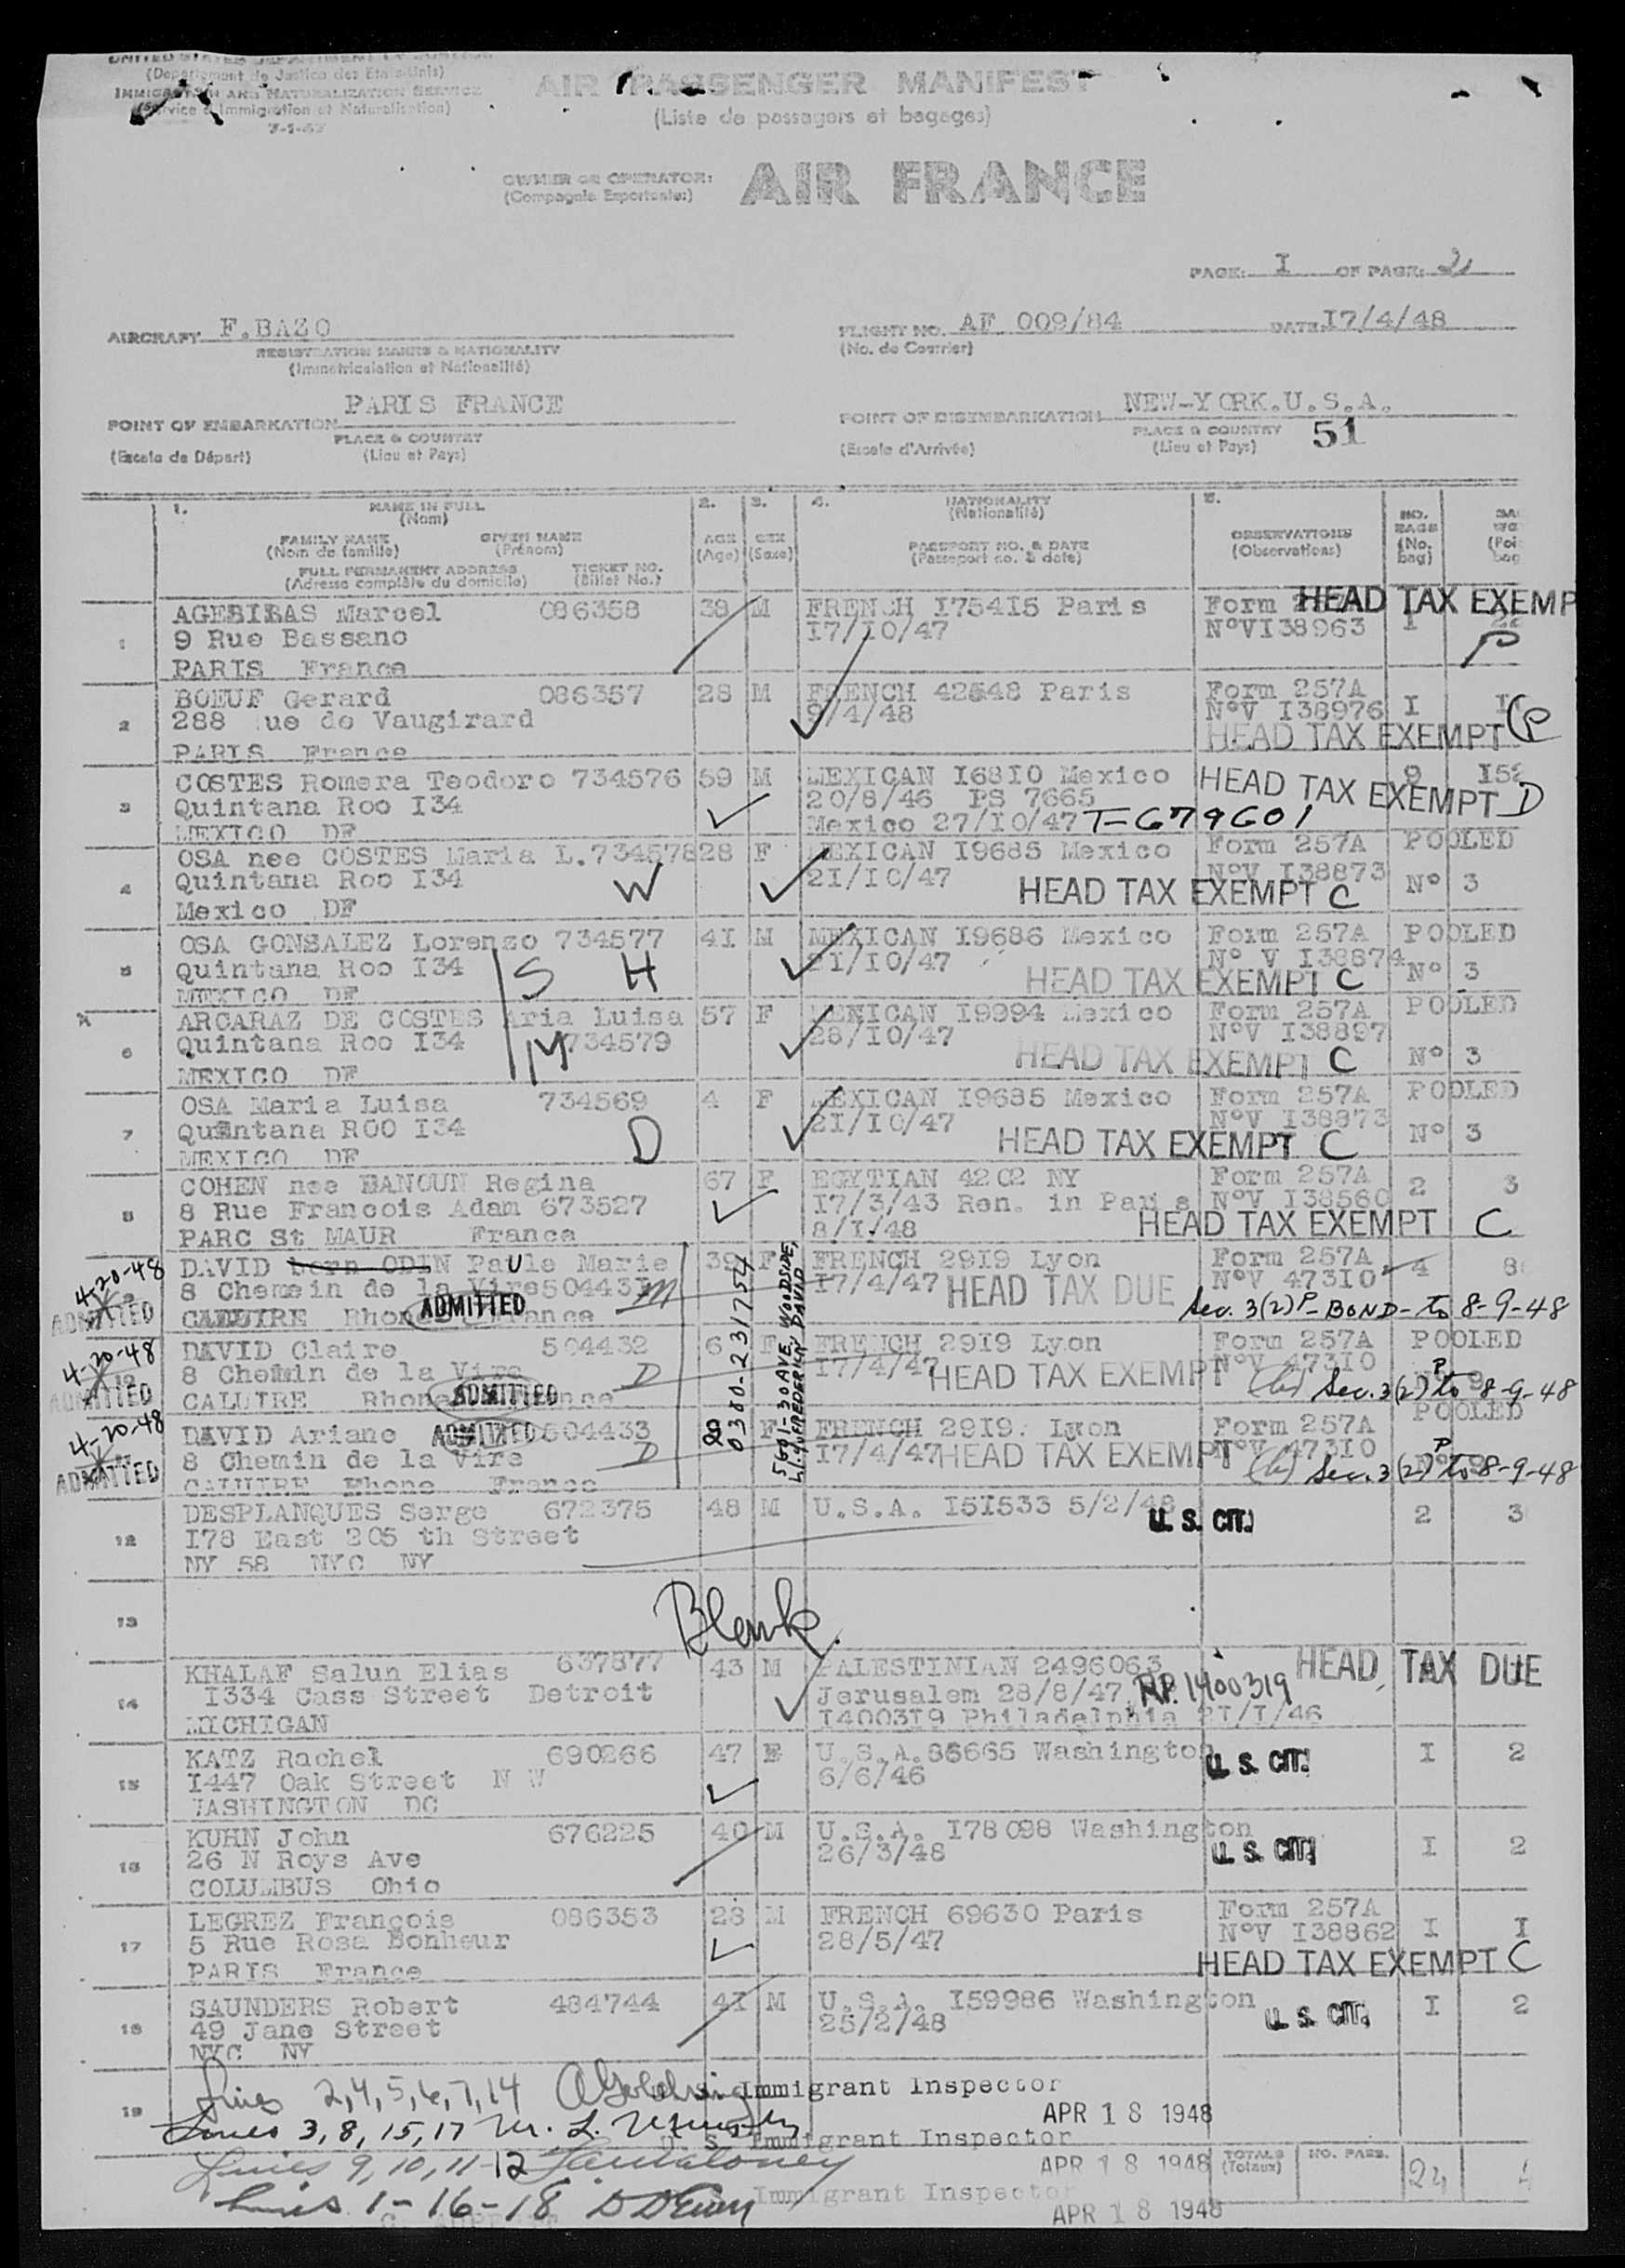 UNITED STATES DEPARTMENT OF JUSTICE
(Departement de Justice des Etats-Unis)
IMMIGRATION AND NATURALIZATION SERVICE
(Service d'Immigration et Naturalisation)
7-1-47
AIR PASSENGER MANIFEST
(Liste de passagers et bagages)
OWNER OR OPERATOR: AIR FRANCE
(Compagnie Exportante:)
PAGE: I OF PAGE: 2
AIRCRAFT F.BAZO
REGISTRATION MARKS & NATIONALITY
(Immatriculation et Nationalité)
FLIGHT NO. AF 009/84 DATE I7/4/48
(No. de Courrier)
POINT OF EMBARKATION PARIS FRANCE
PLACE & COUNTRY
(Escale de Départ) (Lieu et Pays)
POINT OF DISEMBARKATION NEW-YORK.U.S.A.
PLACE & COUNTRY 51
(Escale d'Arrivée) (Lieu et Pays)
1. NAME IN FULL 2. 3. 4. NATIONALITY 5.
(Nom) (Nationalité)
FAMILY NAME GIVEN NAME AGE SEX PASSPORT NO. & DATE OBSERVATIONS NO. BAGS
(Nom de famille) (Prénom) (Age) (Sexe) (Passeport no. & date) (Observations) (No. bag)
FULL PERMANENT ADDRESS TICKET NO.
(Adresse complète du domicile) (Billet No.)
1 AGEBIBAS Marcel 086358 38 M FRENCH I754I5 Paris Form HEAD TAX EXEMP
9 Rue Bassano I7/I0/47 N°VI38963 I P
PARIS France
2 BOEUF Gerard 086357 28 M FRENCH 42548 Paris Form 257A
288 ue de Vaugirard 9/4/48 N°V I38976 I
PARIS France HEAD TAX EXEMPT P
3 COSTES Romera Teodoro 734576 59 M MEXICAN I68I0 Mexico HEAD TAX EXEMPT D 9 I52
Quintana Roo I34 20/8/46 PS 7665
MEXICO DF Mexico 27/I0/47 T-679601
4 OSA nee COSTES Maria L.734578 28 F MEXICAN I9685 Mexico Form 257A POOLED
Quintana Roo I34 W 2I/I0/47 N°V I38873 N° 3
Mexico DF HEAD TAX EXEMPT C
5 OSA GONSALEZ Lorenzo 734577 4I M MEXICAN I9686 Mexico Form 257A POOLED
Quintana Roo I34 S H 2I/I0/47 N° V I38874 N° 3
MEXICO DF HEAD TAX EXEMPT C
6 ARCARAZ DE COSTES aria Luisa 57 F MEXICAN I9994 Mexico Form 257A POOLED
Quintana Roo I34 M 734579 28/I0/47 N°V I38897 N° 3
MEXICO DF HEAD TAX EXEMPT C
7 OSA Maria Luisa 734569 4 F MEXICAN I9685 Mexico Form 257A POOLED
Quintana ROO I34 D 2I/I0/47 N°V I38873 N° 3
MEXICO DF HEAD TAX EXEMPT C
8 COHEN nee BANOUN Regina 67 F EGYTIAN 4202 NY Form 257A
8 Rue Francois Adam 673527 I7/3/43 Ren. in Paris N°V I38560 2 3
PARC St MAUR France 8/I/48 HEAD TAX EXEMPT C
4-20-48 DAVID born ODIN Paule Marie 39 F FRENCH 29I9 Lyon Form 257A
8 Chemein de la Vire 50443I M I7/4/47 HEAD TAX DUE N°V 473I0 4 8
ADMITTED CALUIRE Rhone France ADMITTED Sec. 3(2) P-BOND-to 8-9-48
4-20-48 DAVID Claire 504432 6 F FRENCH 29I9 Lyon Form 257A POOLED
8 Chemin de la Vire D I7/4/47 HEAD TAX EXEMPT N°V 473I0 N° 9
ADMITTED CALUIRE Rhone France ADMITTED Sec. 3(2) P to 8-9-48
4-20-48 DAVID Ariane ADMITTED 504433 F FRENCH 29I9. Lyon Form 257A POOLED
8 Chemin de la Vire D I7/4/47 HEAD TAX EXEMPT N°V 473I0 N° 9
ADMITTED CALUIRE Rhone France Sec. 3(2) P to 8-9-48
0380-231754
5601-30 AVE, WOODSIDE,
FREDERICK DAVID
12 DESPLANQUES Serge 672375 48 M U.S.A. I5I533 5/2/48 U. S. CIT. 2 3
I78 East 205 th Street
NY 58 NYC NY
13 Blank
14 KHALAF Salun Elias 637877 43 M PALESTINIAN 2496063 HEAD TAX DUE
I334 Cass Street Detroit Jerusalem 28/8/47. RP. 1400319
MICHIGAN I4003I9 Philadelphia 2I/I/46
15 KATZ Rachel 690266 47 F U.S.A.86665 Washington U. S. CIT. I 2
I447 Oak Street N W 6/6/46
WASHINGTON DC
16 KUHN John 676225 40 M U.S.A. I78098 Washington U. S. CIT. I 2
26 N Roys Ave 26/3/48
COLUMBUS Ohio
17 LEGREZ François 086353 28 M FRENCH 69630 Paris Form 257A
5 Rue Rosa Bonheur 28/5/47 N°V I38862 I I
PARIS France HEAD TAX EXEMPT C
18 SAUNDERS Robert 484744 4I M U.S.A. I59986 Washington U. S. CIT. I 2
49 Jane Street 25/2/48
NYC NY
19 Lines 2,4,5,6,7,14 Immigrant Inspector
APR 18 1948
Lines 3,8,15,17 U. S. Immigrant Inspector
Lines 9,10,11-12 APR 18 1948 TOTALS (Totaux) NO. PASS. 24
Lines 1-16-18 Immigrant Inspector
APR 18 1948